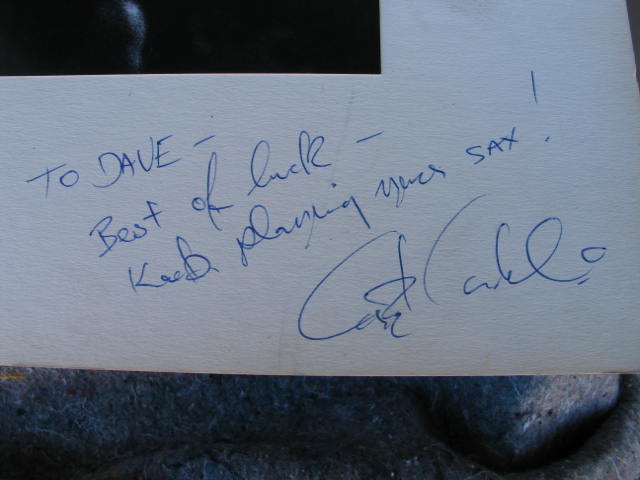 TO DAVE -
Best of luck -
Keep playing your SAX!